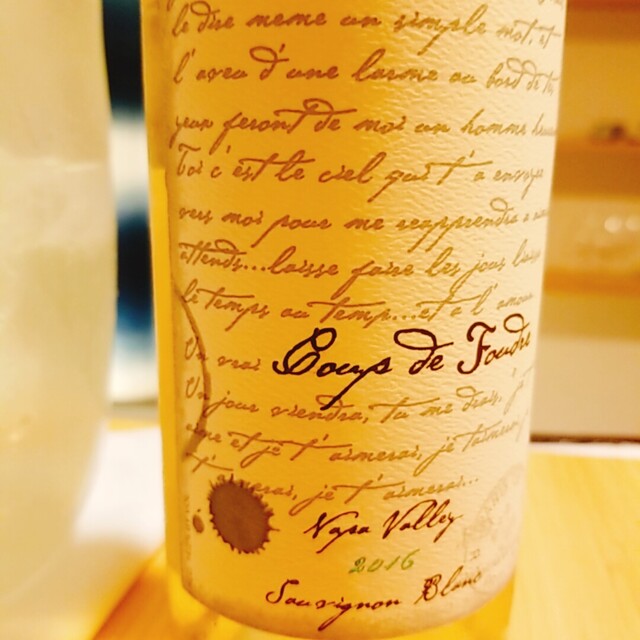 le dire meme un simple mot, et
l'aveu d'une larme au bord de tes
yeux feront de moi un homme
Toi c'est le ciel qui t'a envoyé
vers moi pour me reapprendre a
attends...laisse faire les jours laisse
le temps au temps...et a l'amour
Un vrai Coups de Foudre
Un jour viendra, tu me dirais, je t'
aime et je t'aimerai, je t'aimerai
je t'aimerai...
Napa Valley
2016
Sauvignon Blanc